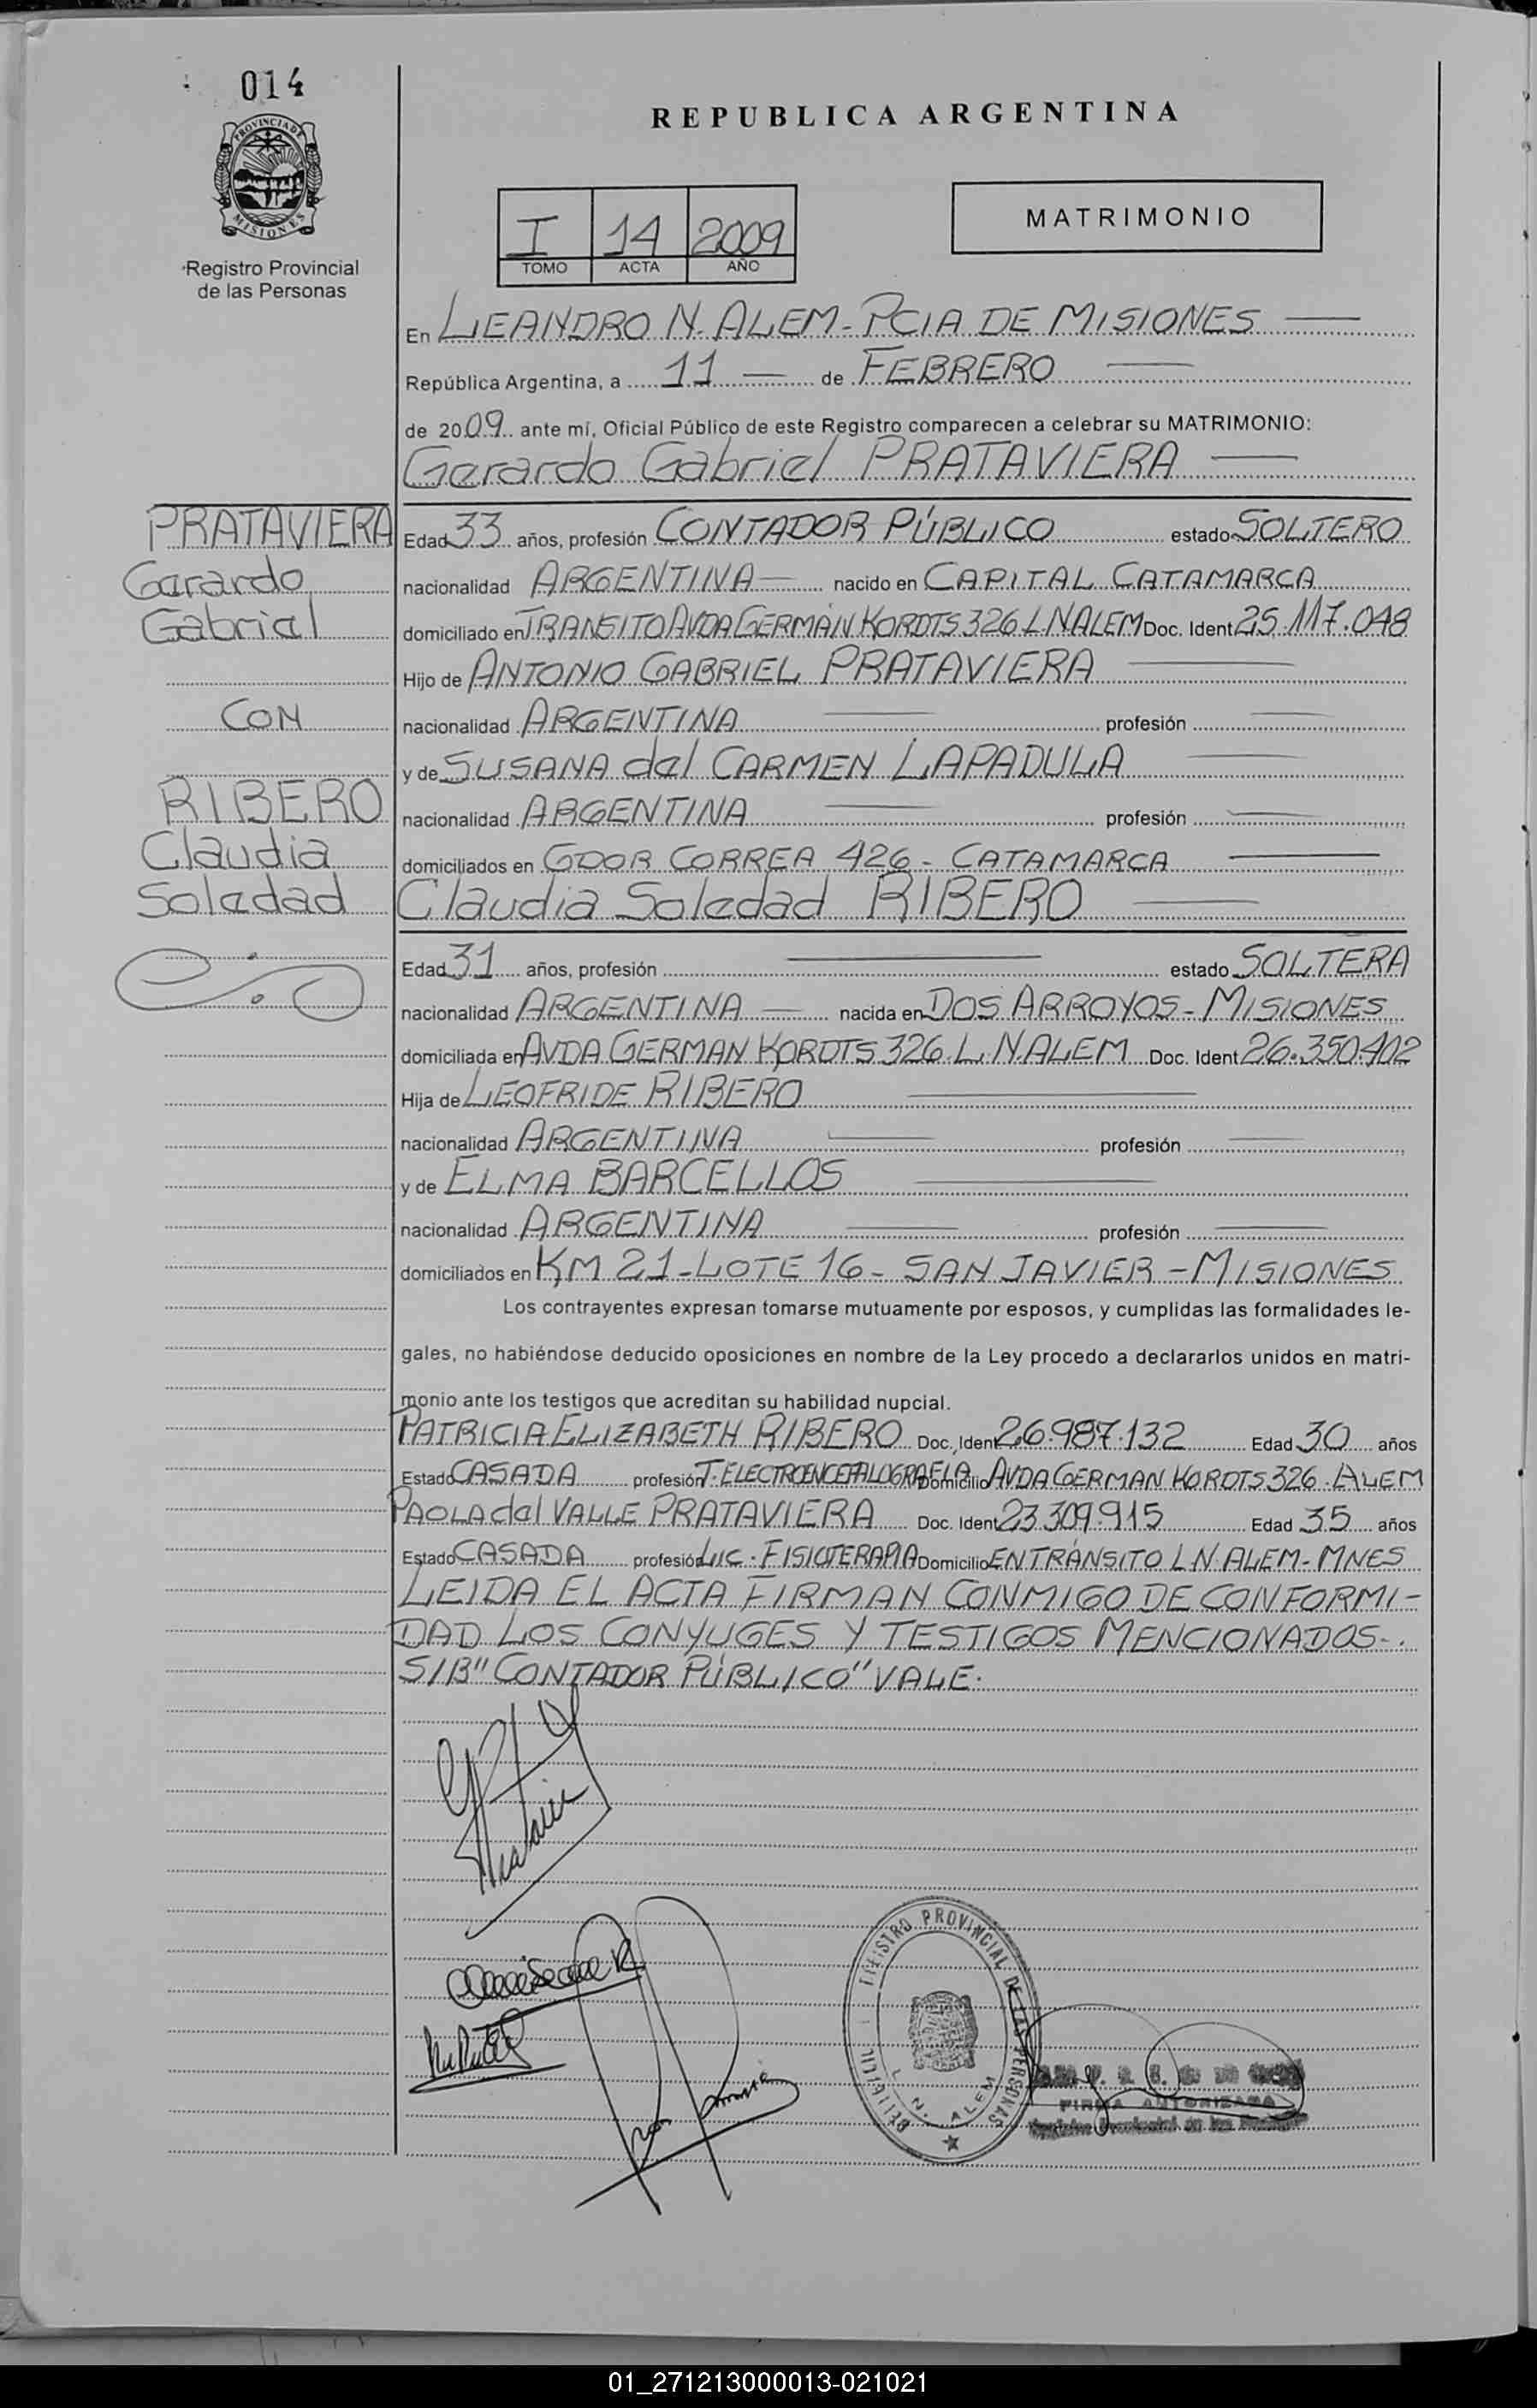 014
PROVINCIA DE
MISIONES
Registro Provincial
de las Personas
REPUBLICA ARGENTINA
I 14 2009
TOMO ACTA AÑO
MATRIMONIO
En LEANDRO N. ALEM - PCIA DE MISIONES
República Argentina, a 11 de FEBRERO
de 2009 ante mí, Oficial Público de este Registro comparecen a celebrar su MATRIMONIO:
Gerardo Gabriel PRATAVIERA
PRATAVIERA
Gerardo
Gabriel
CON
RIBERO
Claudia
Soledad
Edad 33 años, profesión CONTADOR PÚBLICO estado SOLTERO
nacionalidad ARGENTINA nacido en CAPITAL CATAMARCA
domiciliado en TRANSITO AVDA GERMÁN KORDTS 326 L N ALEM Doc. Ident 25.117.048
Hijo de ANTONIO GABRIEL PRATAVIERA
nacionalidad ARGENTINA profesión
y de SUSANA del CARMEN LAPADULA
nacionalidad ARGENTINA profesión
domiciliados en GDOR CORREA 426 - CATAMARCA
Claudia Soledad RIBERO
Edad 31 años, profesión estado SOLTERA
nacionalidad ARGENTINA nacida en DOS ARROYOS - MISIONES
domiciliada en AVDA GERMAN KORDTS 326 L. N. ALEM Doc. Ident 26.350.402
Hija de LEOFRIDE RIBERO
nacionalidad ARGENTINA profesión
y de ELMA BARCELLOS
nacionalidad ARGENTINA profesión
domiciliados en KM 21 - LOTE 16 - SAN JAVIER - MISIONES
Los contrayentes expresan tomarse mutuamente por esposos, y cumplidas las formalidades le-
gales, no habiéndose deducido oposiciones en nombre de la Ley procedo a declararlos unidos en matri-
monio ante los testigos que acreditan su habilidad nupcial.
PATRICIA ELIZABETH RIBERO Doc. Ident 26.987.132 Edad 30 años
Estado CASADA profesión T. ELECTROENCEFALOGRAFIA Domicilio AVDA GERMAN KORDTS 326 - ALEM
PAOLA del VALLE PRATAVIERA Doc. Ident 23.309.915 Edad 35 años
Estado CASADA profesión LIC. FISIOTERAPIA Domicilio EN TRÁNSITO L N. ALEM - MNES
LEIDA EL ACTA FIRMAN CONMIGO DE CONFORMI-
DAD LOS CONYUGES Y TESTIGOS MENCIONADOS-.
S/B "CONTADOR PÚBLICO" VALE.
REGISTRO PROVINCIAL DE LAS PERSONAS
L. N. ALEM
FIRMA AUTORIZADA
Registro Provincial de las Personas
01_271213000013-021021